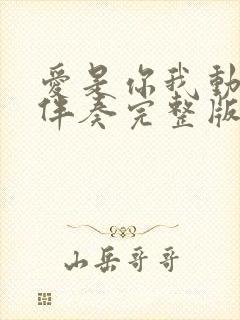 愛是你我動
伴奏完整版
山岳哥哥